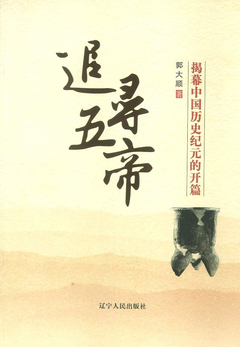 追尋五帝
郭大顺 著
揭幕中国历史纪元的开篇
辽宁人民出版社